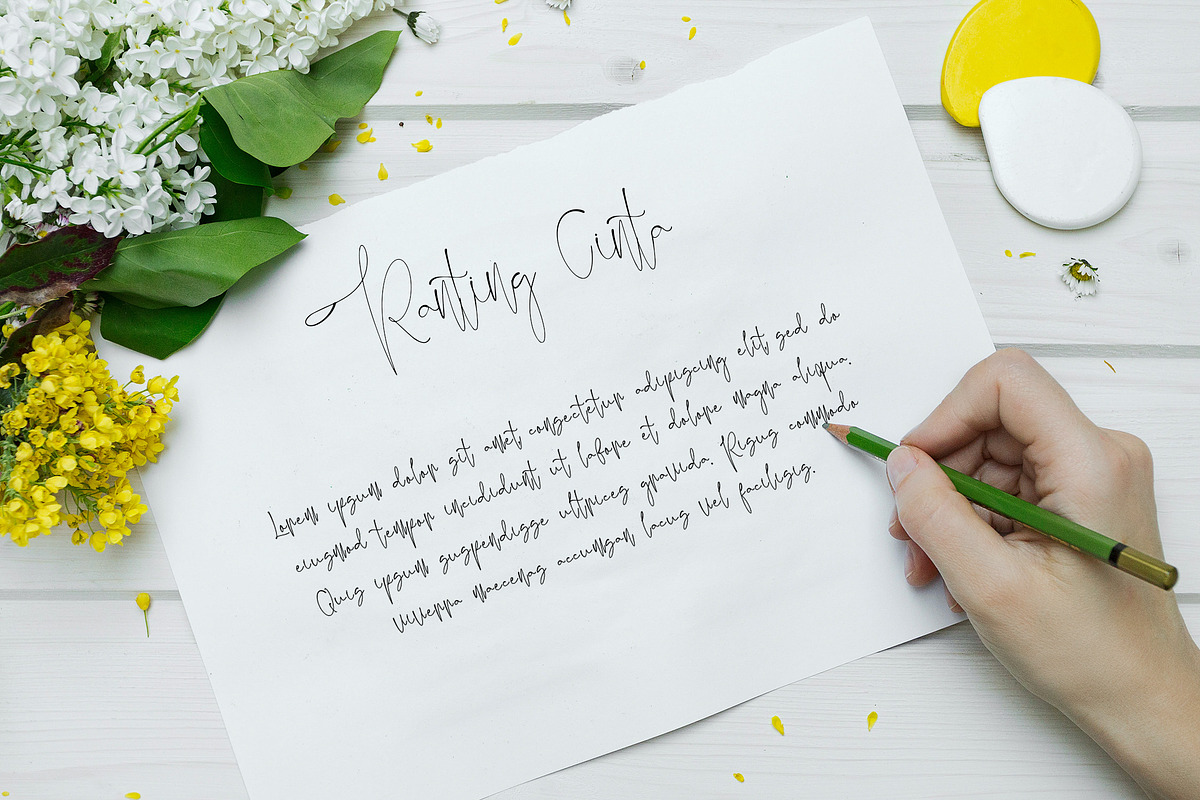 Ranting Cinta
Lorem ipsum dolor sit amet consectetur adipiscing elit sed do
eiusmod tempor incididunt ut labore et dolore magna aliqua.
Quis ipsum suspendisse ultrices gravida. Risus commodo
viverra maecenas accumsan lacus vel facilisis.